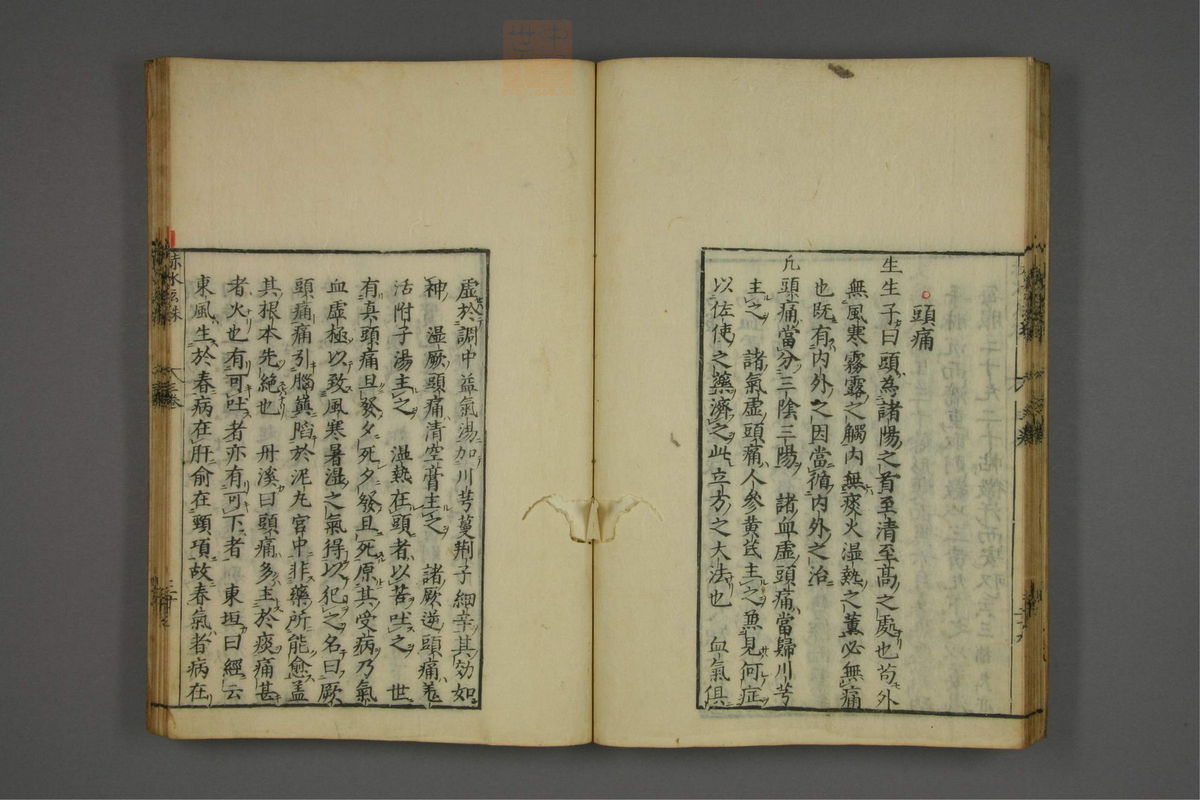 頭痛
生生子曰頭為諸陽之首至清至髙之處也茍外
無風寒霧露之觸内無痰火湿熱之薫必無痛
也既有内外之因當循内外之治
凢頭痛當分三陰三陽 諸血虚頭痛當歸川芎
主之 諸氣虚頭痛人參黄芪主之兼見何症
以佐使之藥濟之此立方之大法也 血氣俱
虚於調中益氣湯加川芎蔓荆子細辛其効如
神 湿厥頭痛清空膏主之 諸厥逆頭痛羗
活附子湯主之 湿熱在頭者以苦吐之 世
有真頭痛旦發夕死夕發旦死原其受病乃氣
血虚極以致風寒暑湿之氣得以犯之名曰厥
頭痛痛引腦巔陷於泥丸宮中非藥所能愈盖
其根本先絶也 丹溪曰頭痛多主於痰痛甚
者火也有可吐者亦有可下者 東垣曰經云
東風生於春病在肝俞在頸項故春氣者病在
赤水玄珠
三卷